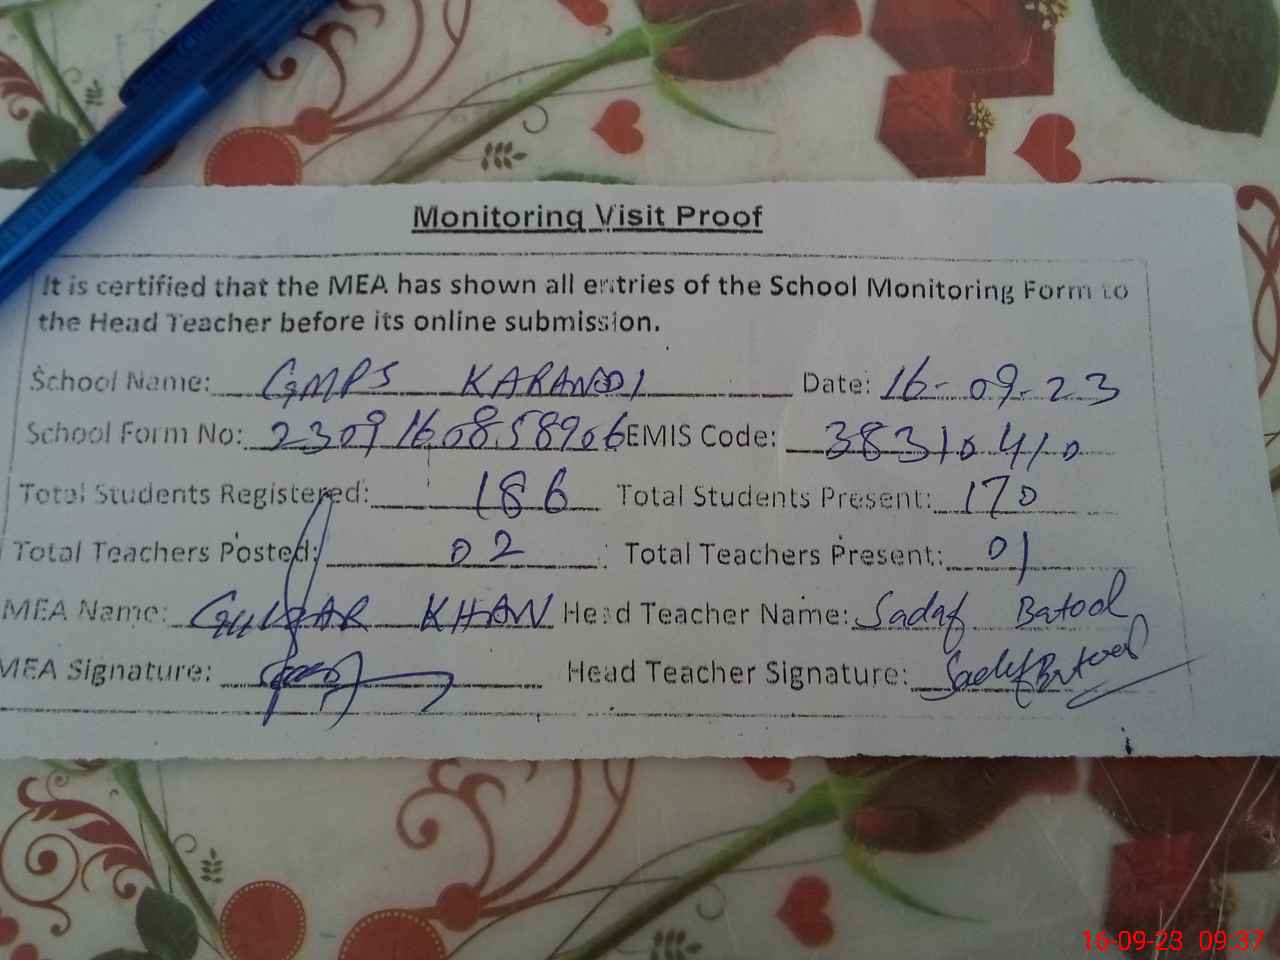 Monitoring Visit Proof
It is certified that the MEA has shown all entries of the School Monitoring Form to
the Head Teacher before its online submission.
School Name: GMPS KARANDI Date: 16-09-23
School Form No: 2309160858906 EMIS Code: 38310410
Total Students Registered: 186 Total Students Present: 170
Total Teachers Posted: 02 Total Teachers Present: 01
MEA Name: GULZAR KHAN Head Teacher Name: Sadaf Batool
MEA Signature: Head Teacher Signature: Sadaf Batool
16-09-23 09:37